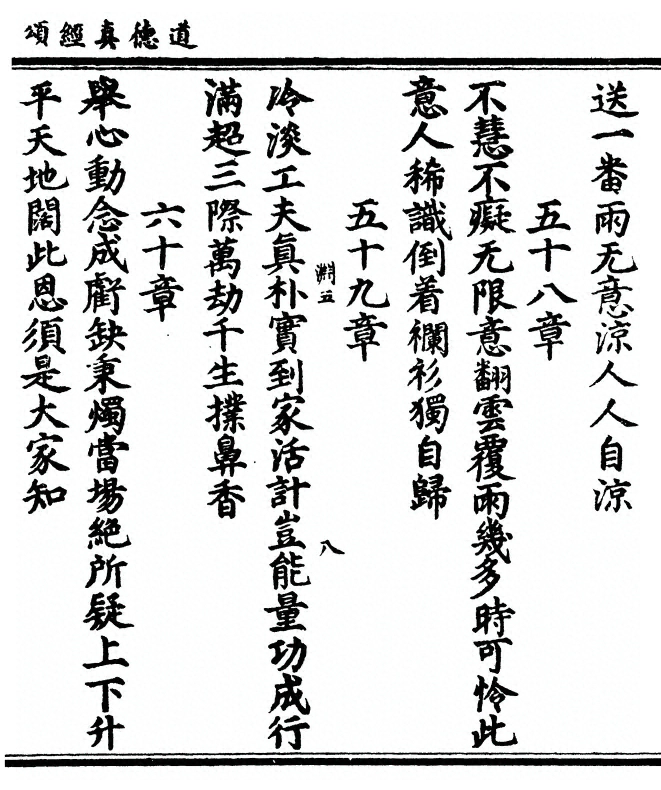 道德真經頌
送一番雨无意涼人人自涼
五十八章
不慧不癡无限意翻雲覆雨幾多時可怜此
意人稀識倒着襴衫獨自歸
五十九章
淵五
八
冷淡工夫眞朴實到家活計豈能量功成行
滿超三際萬劫千生撲鼻香
六十章
舉心動念成虧缺秉燭當場絶所疑上下升
平天地闊此恩須是大家知